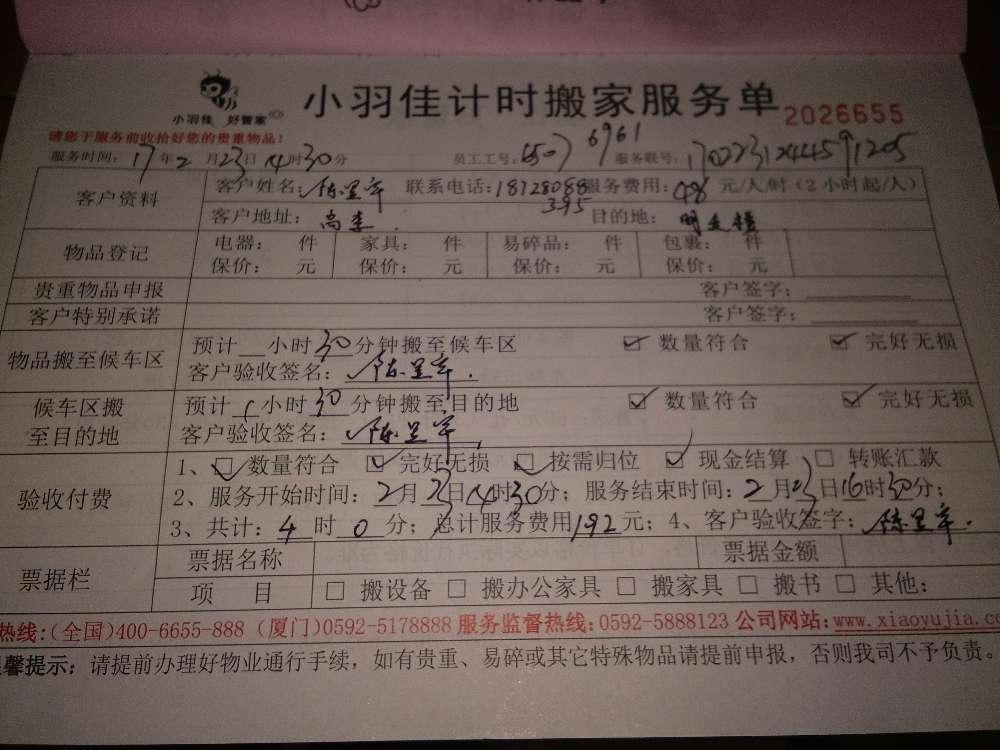 小羽佳 好管家
小羽佳计时搬家服务单 2026655
请您于服务前收拾好您的贵重物品!
服务时间: 17年2月23日14时30分 员工工号: 6507 6961 服务联号: 17022312444591205
客户资料 客户姓名: 联系电话: 18728088395 服务费用: 48 元/人/时(2小时起/人)
客户地址: 尚李 目的地:
物品登记 电器: 件 家具: 件 易碎品: 件 包裹: 件
保价: 元 保价: 元 保价: 元 保价: 元
贵重物品申报 客户签字:
客户特别承诺 客户签字:
物品搬至候车区 预计__小时30分钟搬至候车区 ☑ 数量符合 ☑ 完好无损
客户验收签名:
候车区搬至目的地 预计1小时30分钟搬至目的地 ☑ 数量符合 ☑ 完好无损
客户验收签名:
验收付费 1、☑数量符合 ☑完好无损 ☑按需归位 ☑现金结算 □转账汇款
2、服务开始时间: 2月23日14时30分; 服务结束时间: 2月23日16时30分;
3、共计: 4时0分; 总计服务费用192元; 4、客户验收签字:
票据栏 票据名称 票据金额
项 目 □搬设备 □搬办公家具 □搬家具 □搬书 □其他:
热线:(全国)400-6655-888 (厦门)0592-5178888 服务监督热线:0592-5888123 公司网站:www.xiaoyujia.c
馨提示: 请提前办理好物业通行手续,如有贵重、易碎或其它特殊物品请提前申报,否则我司不予负责。